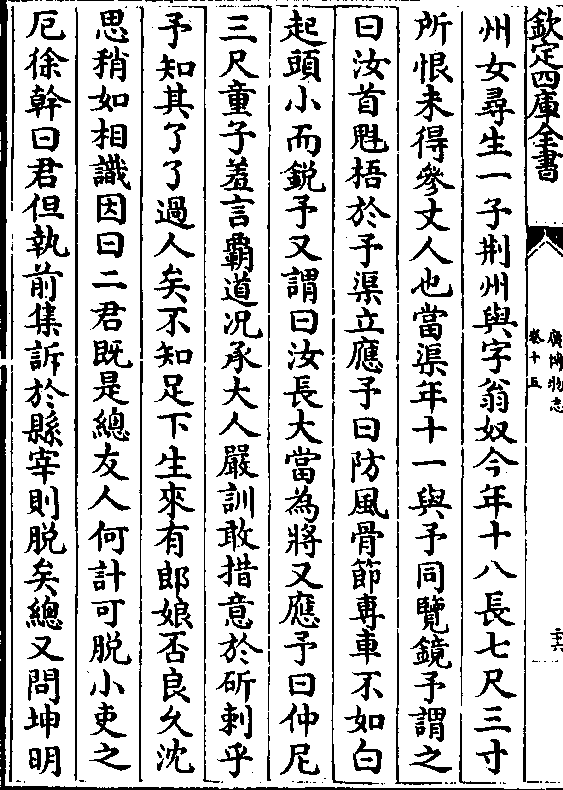 欽定四庫全書
廣博物志
卷十五
二十六
州女尋生一子荆州與字翁奴今年十八長七尺三寸
所恨未得參丈人也當渠年十一與予同覽鏡予謂之
曰汝首魁梧於予渠立應予曰防風骨節專車不如白
起頭小而鋭予又謂曰汝長大當為將又應予曰仲尼
三尺童子羞言霸道况承大人嚴訓敢措意於斫刺乎
予知其了了過人矣不知足下生來有郎娘否良久沈
思稍如相識因曰二君既是總友人何計可脱小吏之
厄徐幹曰君但執前集訴於縣宰則脱矣總又問坤明